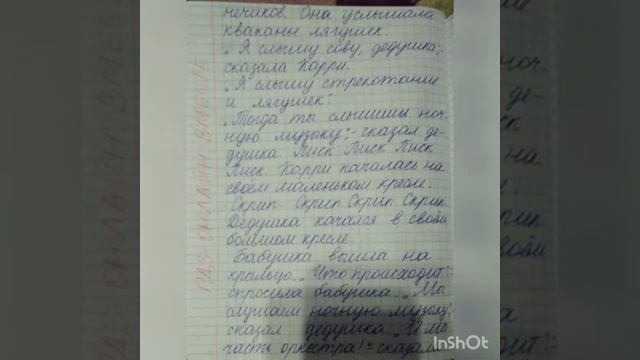 нечиков. Она услышала
кваканы лягушек.
„Я слышу сову, дедушка",
сказала Карри.
„Я слышу стрекотание
и лягушек".
„Тогда ты слышишь ноч-
ную музыку"- сказал де-
душка. Писк Писк Писк
Писк. Карри качалась на
своём маленьком кресле.
Скрип. Скрип Скрип. Скрип
Дедушка качался в своём
большом кресле.
Бабушка вышла на
крыльцо. „Что происходит"-
спросила бабушка. „Мы
слушаем ночную музыку",
сказал дедушка. „И мы
часть оркестра!"- сказала
ОНЛАЙН ВМЕСТЕ
InShOt